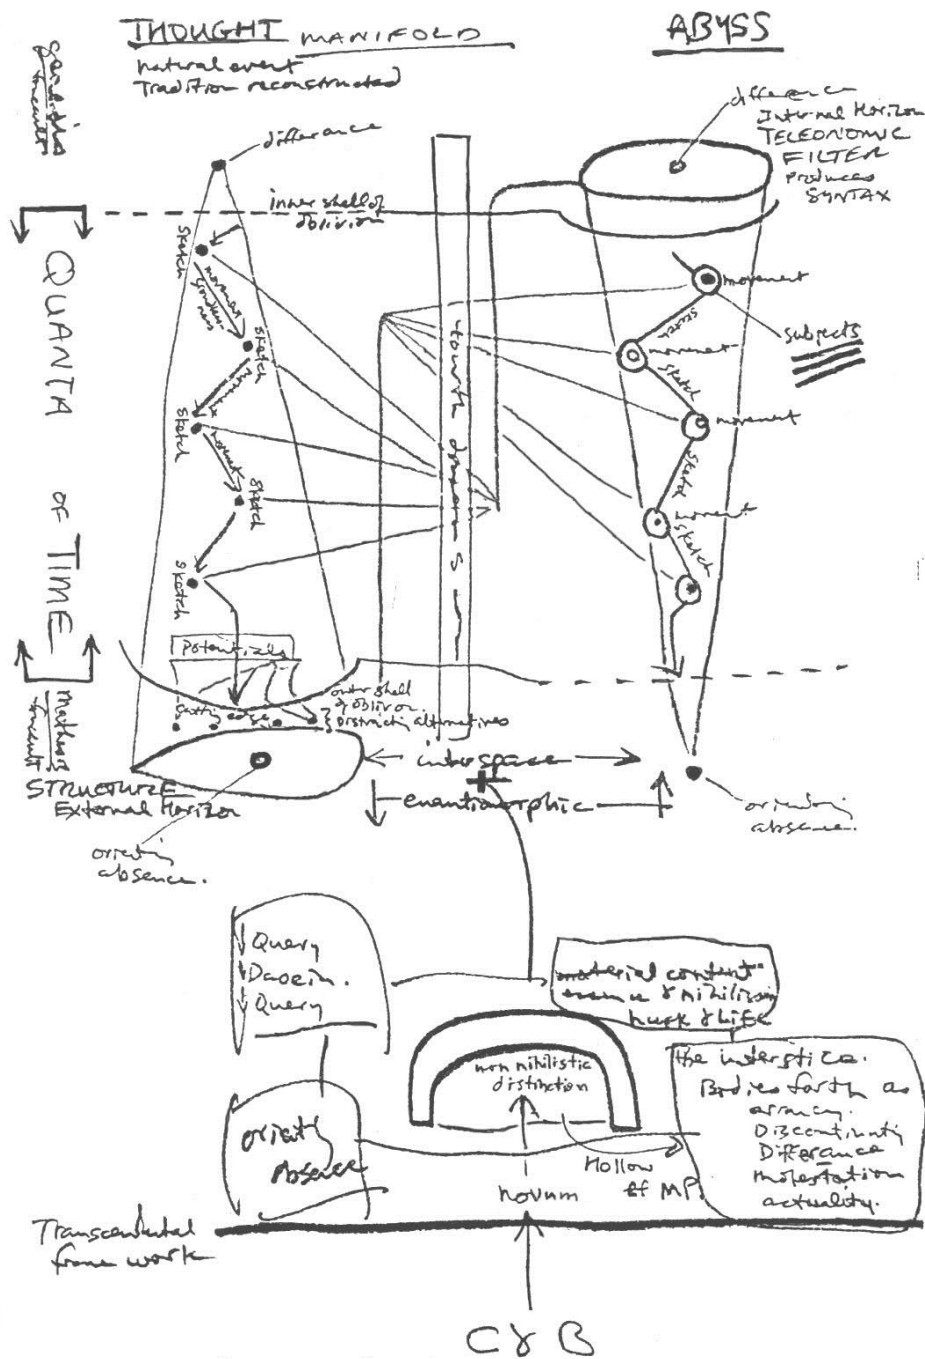 THOUGHT MANIFOLD
natural event
Tradition reconstructed
ABYSS
difference
difference
Internal Horizon
TELEONOMIC
FILTER
produces
SYNTAX
inner shell of
oblivion
QUANTA OF TIME
sketch
movement
sketch
sketch
movement
sketch
sketch
movement
sketch
movement
sketch
movement
sketch
movement
sketch
subjects
Potentials
outer shell
of oblivion
distracting alternatives
STRUCTURE
External Horizon
interspace
enantiomorphic
orienting
absence.
orienting
absence.
Query
Dasein.
Query
material content
essence & nihilism
husk & life
non nihilistic
distinction
the interstice.
Bodies forth as
array.
Discontinuity
Differance
molestation
actuality.
orienting
Absence
Hollow
of MP.
novum
Transcendental
frame work
C & B